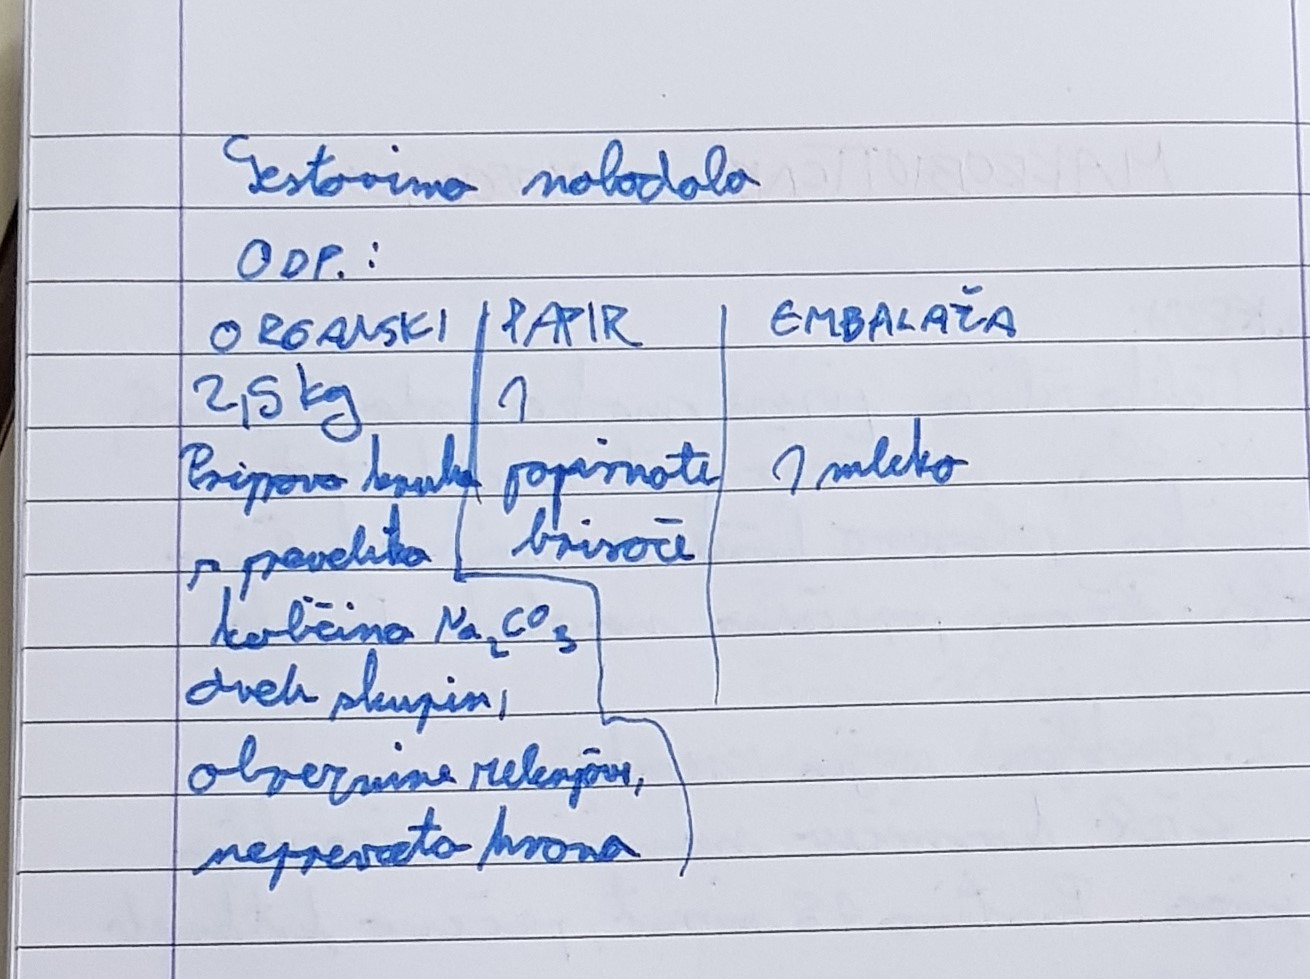 Testovima nalodala
ODP.:
ORGANSKI | PAPIR | EMBALAŽA
2,5 kg | 1
Priprava kruha | papirnate | 1 mleko
prevelika | brisače
količina Na₂CO₃
dveh skupin,
obreznine zelenjave,
neprevzeta hrana